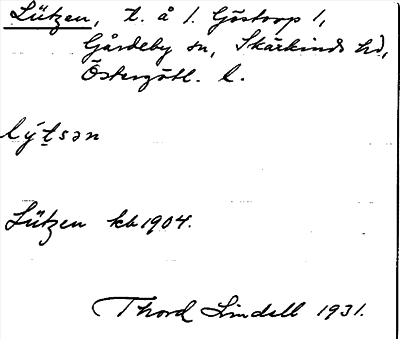 Lützen, t. å 1. Göstorp 1,
Gårdeby sn, Skärkinds hd,
Östergötl. l.
lýtsən
Lützen kb 1904.
Thord Lindell 1931.